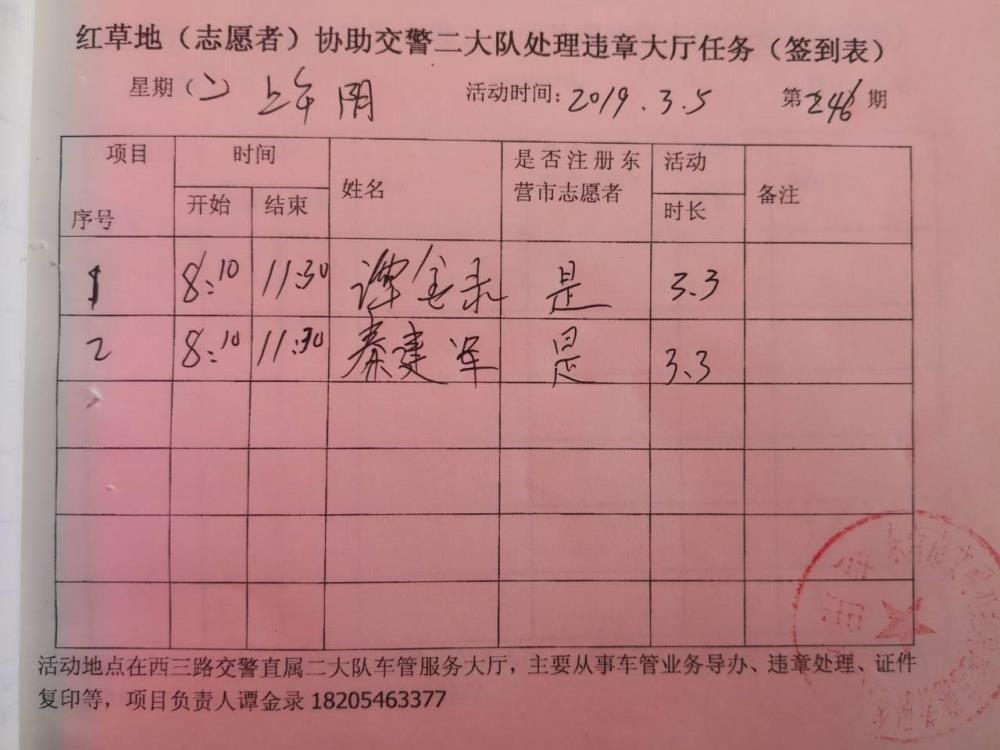 红草地（志愿者）协助交警二大队处理违章大厅任务（签到表）
星期（二） 上午 阴 活动时间：2019.3.5 第246期
项目 时间 姓名 是否注册东营市志愿者 活动时长 备注
序号 开始 结束
1 8:10 11:30 谭金录 是 3.3
2 8:10 11:30 秦建军 是 3.3
活动地点在西三路交警直属二大队车管服务大厅，主要从事车管业务导办、违章处理、证件
复印等，项目负责人谭金录 18205463377